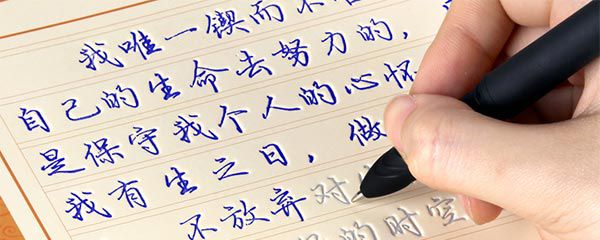 我唯一锲而不
自己的生命去努力的，
是保守我个人的心怀
我有生之日，做
不放弃对
的时空